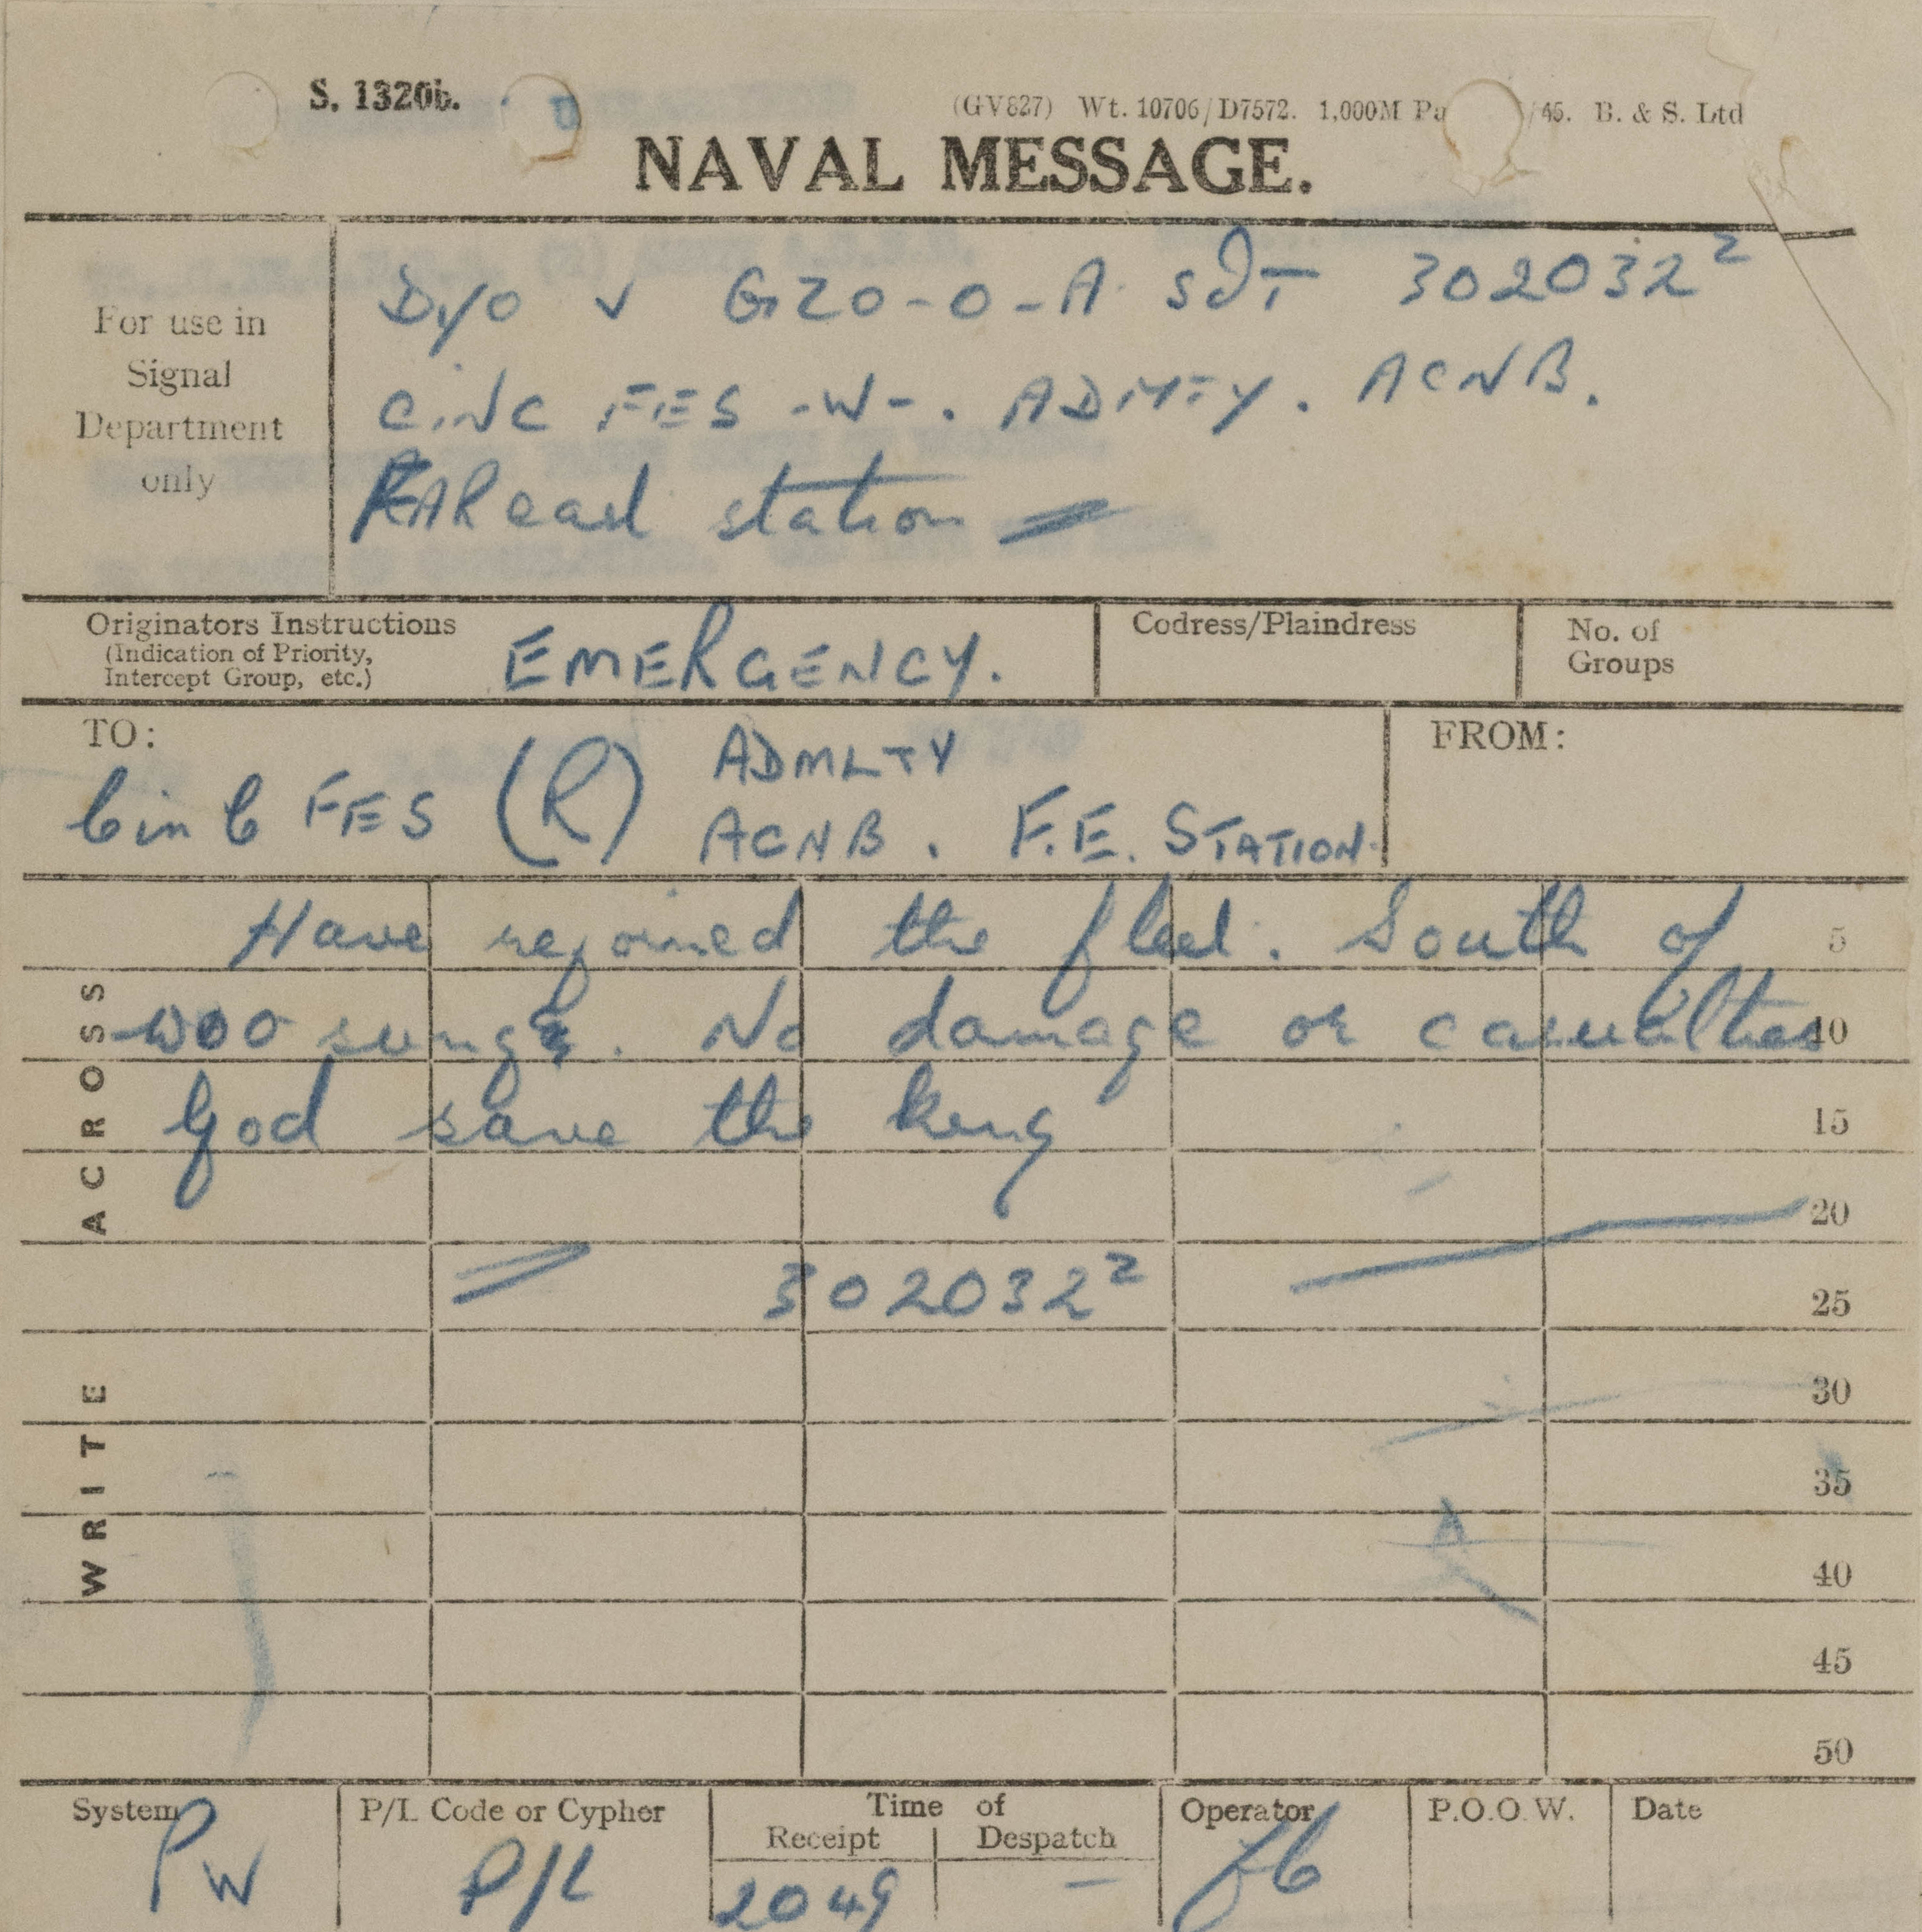 S. 1320b.
(GV827) Wt. 10706/D7572. 1,000M Pa /45. B. & S. Ltd
NAVAL MESSAGE.
For use in
Signal
Department
only
D/O v GZO-O-A 302032Z
CINC FES -W-. ADMTY. ACNB.
station
Originators Instructions
(Indication of Priority,
Intercept Group, etc.)
EMERGENCY.
Codress/Plaindress
No. of
Groups
TO:
CinC FES (R) ADMLTY
ACNB. F.E. STATION.
FROM:
WRITE ACROSS
Have rejoined the fleet. South of 5
woosung. No damage or casualties 10
God save the king 15
20
302032Z 25
30
35
40
45
50
System
PW
P/L Code or Cypher
P/L
Time of
Receipt
2049
Despatch
–
Operator
P.O.O.W.
Date